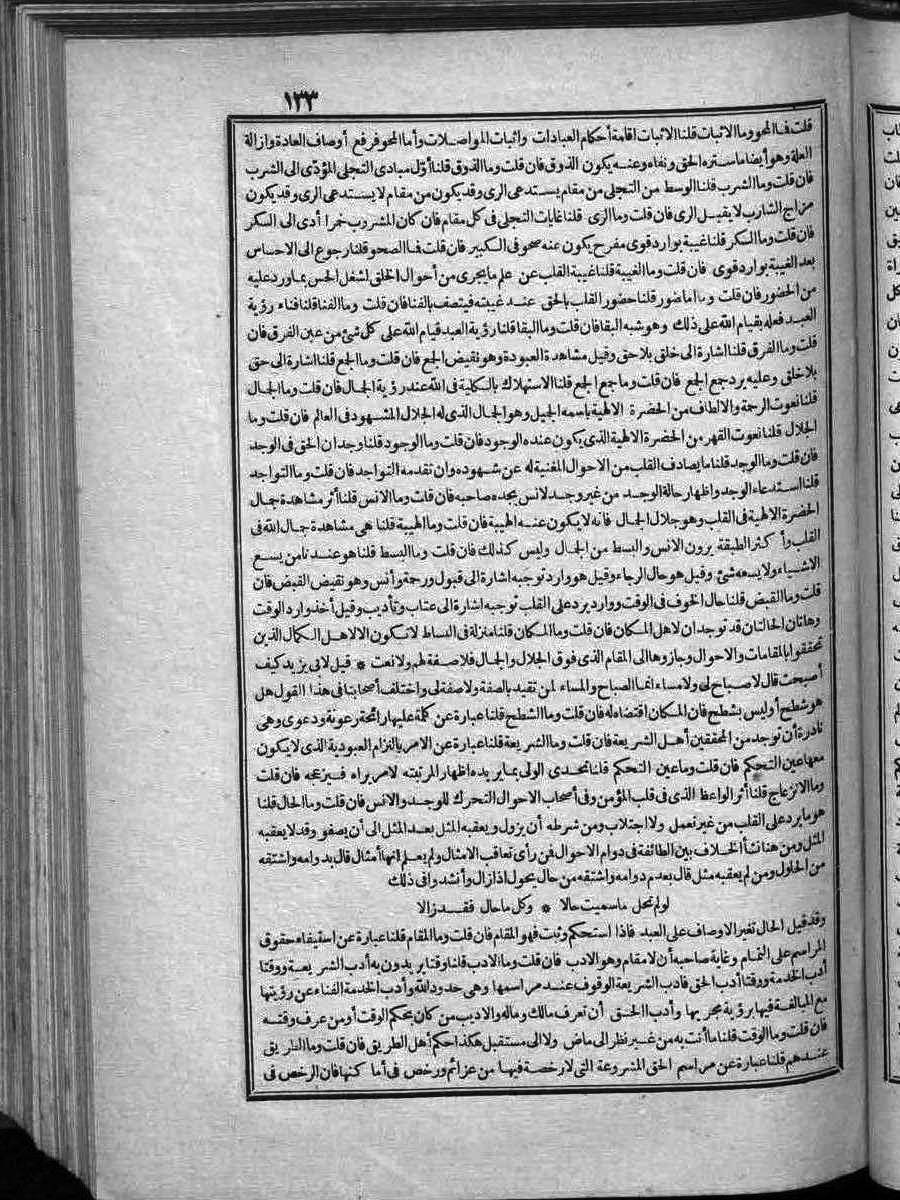 ١٣٣
قلت فما المحو وما الاثبات قلنا الاثبات اقامة أحكام العبادات واثبات المواصلات وأما المحو فرفع أوصاف العادة وازالة
العلة وهو أيضا ما ستره الحق ونفاه وعنه يكون الذوق فان قلت وما الذوق قلنا أول مبادى التجلى المؤدى الى الشرب
فان قلت وما الشرب قلنا الوسط من التجلى من مقام يستدعى الرى وقد يكون من مقام لا يستدعى الرى وقد يكون
مزاج الشارب لا يقبل الرى فان قلت وما الرى قلنا غايات التجلى فى كل مقام فان كان المشروب خمرا أدى الى السكر
فان قلت وما السكر قلنا غيبة بوارد قوى مفرح يكون عنه صحو فى الكبير فان قلت فما الصحو قلنا رجوع الى الاحساس
بعد الغيبة بوارد قوى فان قلت وما الغيبة قلنا غيبة القلب عن علم ما يجرى من أحوال الخلق لشغل الحس بما ورد عليه
من الحضور فان قلت وما الحضور قلنا حضور القلب بالحق عند غيبته فيتصف بالفنا فان قلت وما الفنا قلنا فناء رؤية
العبد فعله بقيام الله على ذلك وهو شبه البقا فان قلت وما البقا قلنا رؤية العبد قيام الله على كل شئ من عين الفرق فان
قلت وما الفرق قلنا اشارة الى خلق بلا حق وقيل مشاهدة العبودة وهو نقيض الجمع فان قلت وما الجمع قلنا اشارة الى حق
بلا خلق وعليه يرد جمع الجمع فان قلت وما جمع الجمع قلنا الاستهلاك بالكلية فى الله عند رؤية الجمال فان قلت وما الجمال
قلنا نعوت الرحمة والالطاف من الحضرة الالهية باسمه الجميل وهو الجمال الذى له الجلال المشهود فى العالم فان قلت وما
الجلال قلنا نعوت القهر من الحضرة الالهية الذى يكون عنده الوجود فان قلت وما الوجود قلنا وجدان الحق فى الوجد
فان قلت وما الوجد قلنا ما يصادف القلب من الاحوال المغنية له عن شهوده وان تقدمه التواجد فان قلت وما التواجد
قلنا استدعاء الوجد واظهار حالة الوجد من غير وجد لانس يجده صاحبه فان قلت وما الانس قلنا أثر مشاهدة جمال
الحضرة الالهية فى القلب وهو جلال الجمال فانه لا يكون عنه الهيبة فان قلت وما الهيبة قلنا هى مشاهدة جمال الله فى
القلب وأكثر الطبقة يرون الانس والبسط من الجمال وليس كذلك فان قلت وما البسط قلنا هو عندنا من يسع
الاشياء ولا يسعه شئ وقيل هو حال الرجاء وقيل هو وارد توجبه اشارة الى قبول ورحمة وأنس وهو نقيض القبض فان
قلت وما القبض قلنا حال الخوف فى الوقت ووارد يرد على القلب توجبه اشارة الى عتاب وتأديب وقيل أخذ وارد الوقت
وهاتان الحالتان قد توجدان لاهل المكان فان قلت وما المكان قلنا منزلة فى البساط لا تكون الا لاهل الكمال الذين
تحققوا بالمقامات والاحوال وجازوها الى المقام الذى فوق الجلال والجمال فلا صفة لهم ولا نعت * قيل لابى يزيد كيف
أصبحت قال لا صباح لى ولا مساء انما الصباح والمساء لمن تقيد بالصفة ولا صفة لى واختلف أصحابنا فى هذا القول هل
هو شطح أوليس بشطح فان المكان اقتضاه له فان قلت وما الشطح قلنا عبارة عن كلمة عليها رائحة رعونة ودعوى وهى
نادرة أن توجد من المحققين أهل الشريعة فان قلت وما الشريعة قلنا عبارة عن الامر بالتزام العبودية الذى لا يكون
معها عين التحكم فان قلت وما عين التحكم قلنا تحدى الولى بما يريده اظهار المرتبته لامر يراه فيزعجه فان قلت
وما الانزعاج قلنا أثر الواعظ الذى فى قلب المؤمن وفى أصحاب الاحوال التحرك للوجد والانس فان قلت وما الحال قلنا
هو ما يرد على القلب من غير تعمل ولا اجتلاب ومن شرطه أن يزول ويعقبه المثل بعد المثل الى أن يصفو وقد لا يعقبه
المثل ومن هنا نشأ الخلاف بين الطائفة فى دوام الاحوال فمن رأى تعاقب الامثال ولم يعلم انها أمثال قال بدوامه واشتقه
من الحلول ومن لم يعقبه مثل قال بعدم دوامه واشتقه من حال يحول اذا زال وأنشدوا فى ذلك
لو لم تحل ما سميت حالا * وكل ما حال فقد زالا
وقد قيل الحال تغير الاوصاف على العبد فاذا استحكم وثبت فهو المقام فان قلت وما المقام قلنا عبارة عن استيفاء حقوق
المراسم على التمام وغاية صاحبه أن لا مقام وهو الادب فان قلت وما الادب قلنا وقتا يريدون به أدب الشريعة ووقتا
أدب الخدمة ووقتا أدب الحق فادب الشريعة الوقوف عند مراسمها وهى حدود الله وأدب الخدمة الفناء عن رؤيتها
مع المبالغة فيها برؤية مجريها وأدب الحق أن تعرف مالك وماله والاديب من كان بحكم الوقت أو من عرف وقته
فان قلت وما الوقت قلنا ما أنت به من غير نظر الى ماض ولا الى مستقبل هكذا حكم أهل الطريق فان قلت وما الطريق
عندهم قلنا عبارة عن مراسم الحق المشروعة التى لا رخصة فيها من عزائم ورخص فى أماكنها فان الرخص فى